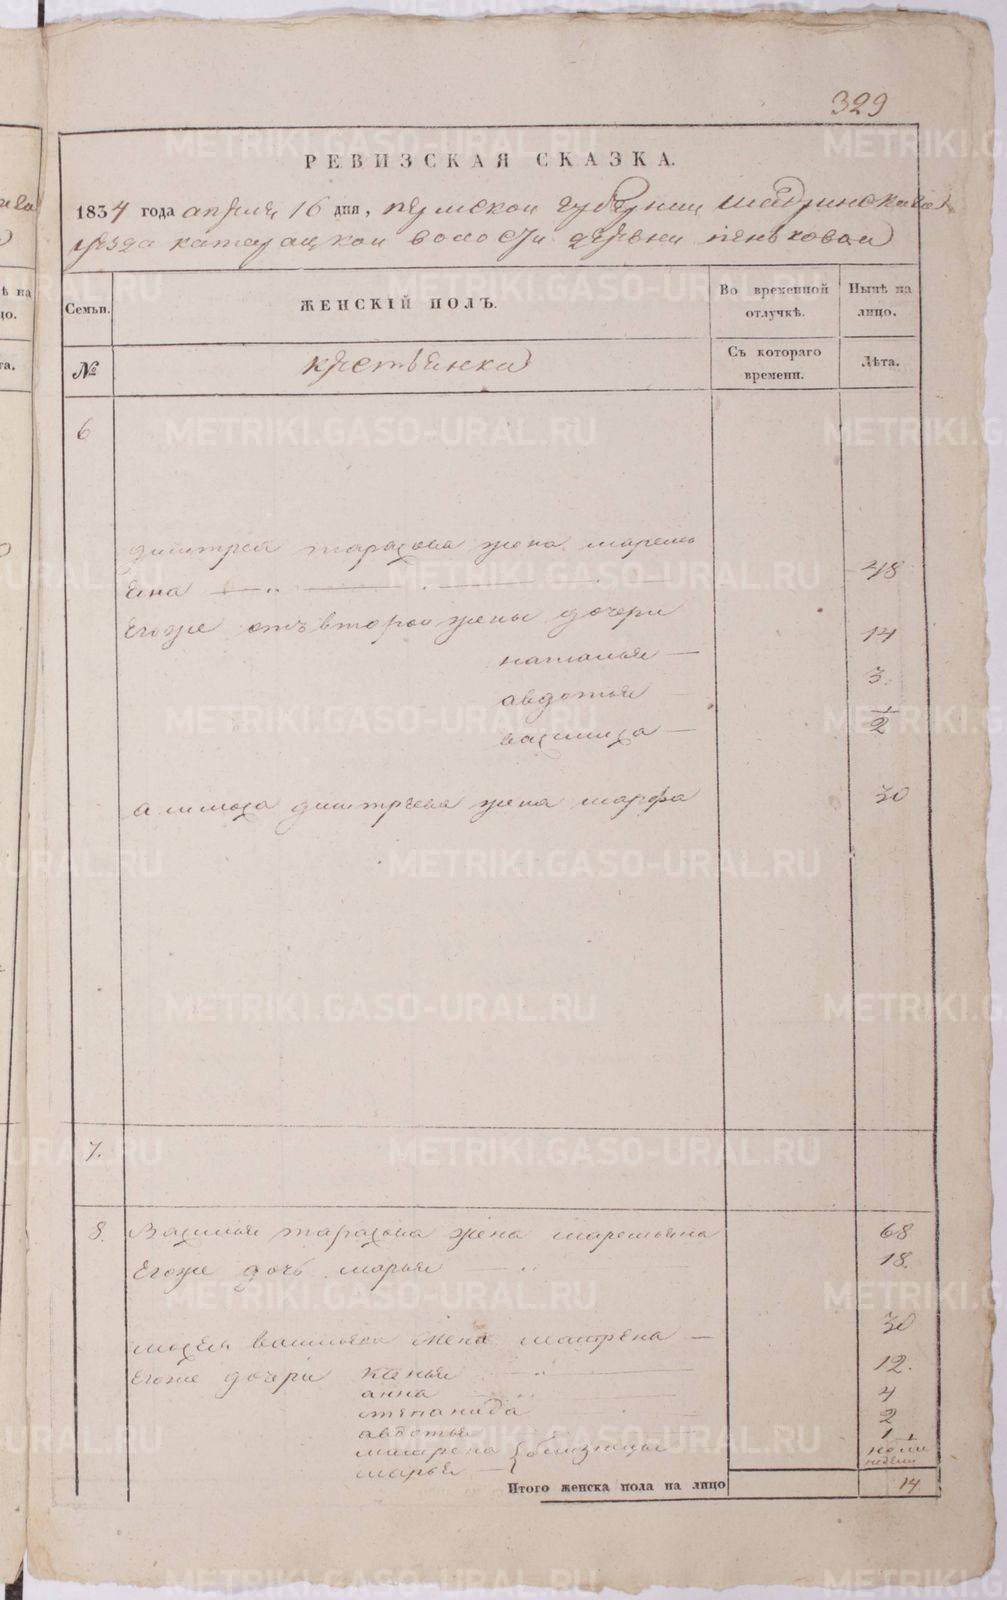 329
РЕВИЗСКАЯ СКАЗКА.
1834 года апреля 16 дня, пермской губернии шадринскаго
уезда катаруцкой волости деревни пеньковой
Семьи.
ЖЕНСКІЙ ПОЛЪ.
Во временной отлучкѣ.
Нынѣ на лицо.
№
крестьянки
Съ котораго времени.
Лѣта.
6
дмитрея тарасова жена
48
Егоже отъ второй жены дочери
наталья — 14
авдотья 3.
василиса — 1/2
дмитрева жена марфа 30
7.
8. Василья тарасова жена 68
Егоже дочь марья 18.
васильева жена матрена — 30
Егоже дочери ксенья 12.
анна 4
степанида 2
авдотья 1
матрена } близнецы
марья — недели
Итого женска пола на лицо 14
METRIKI.GASO-URAL.RU